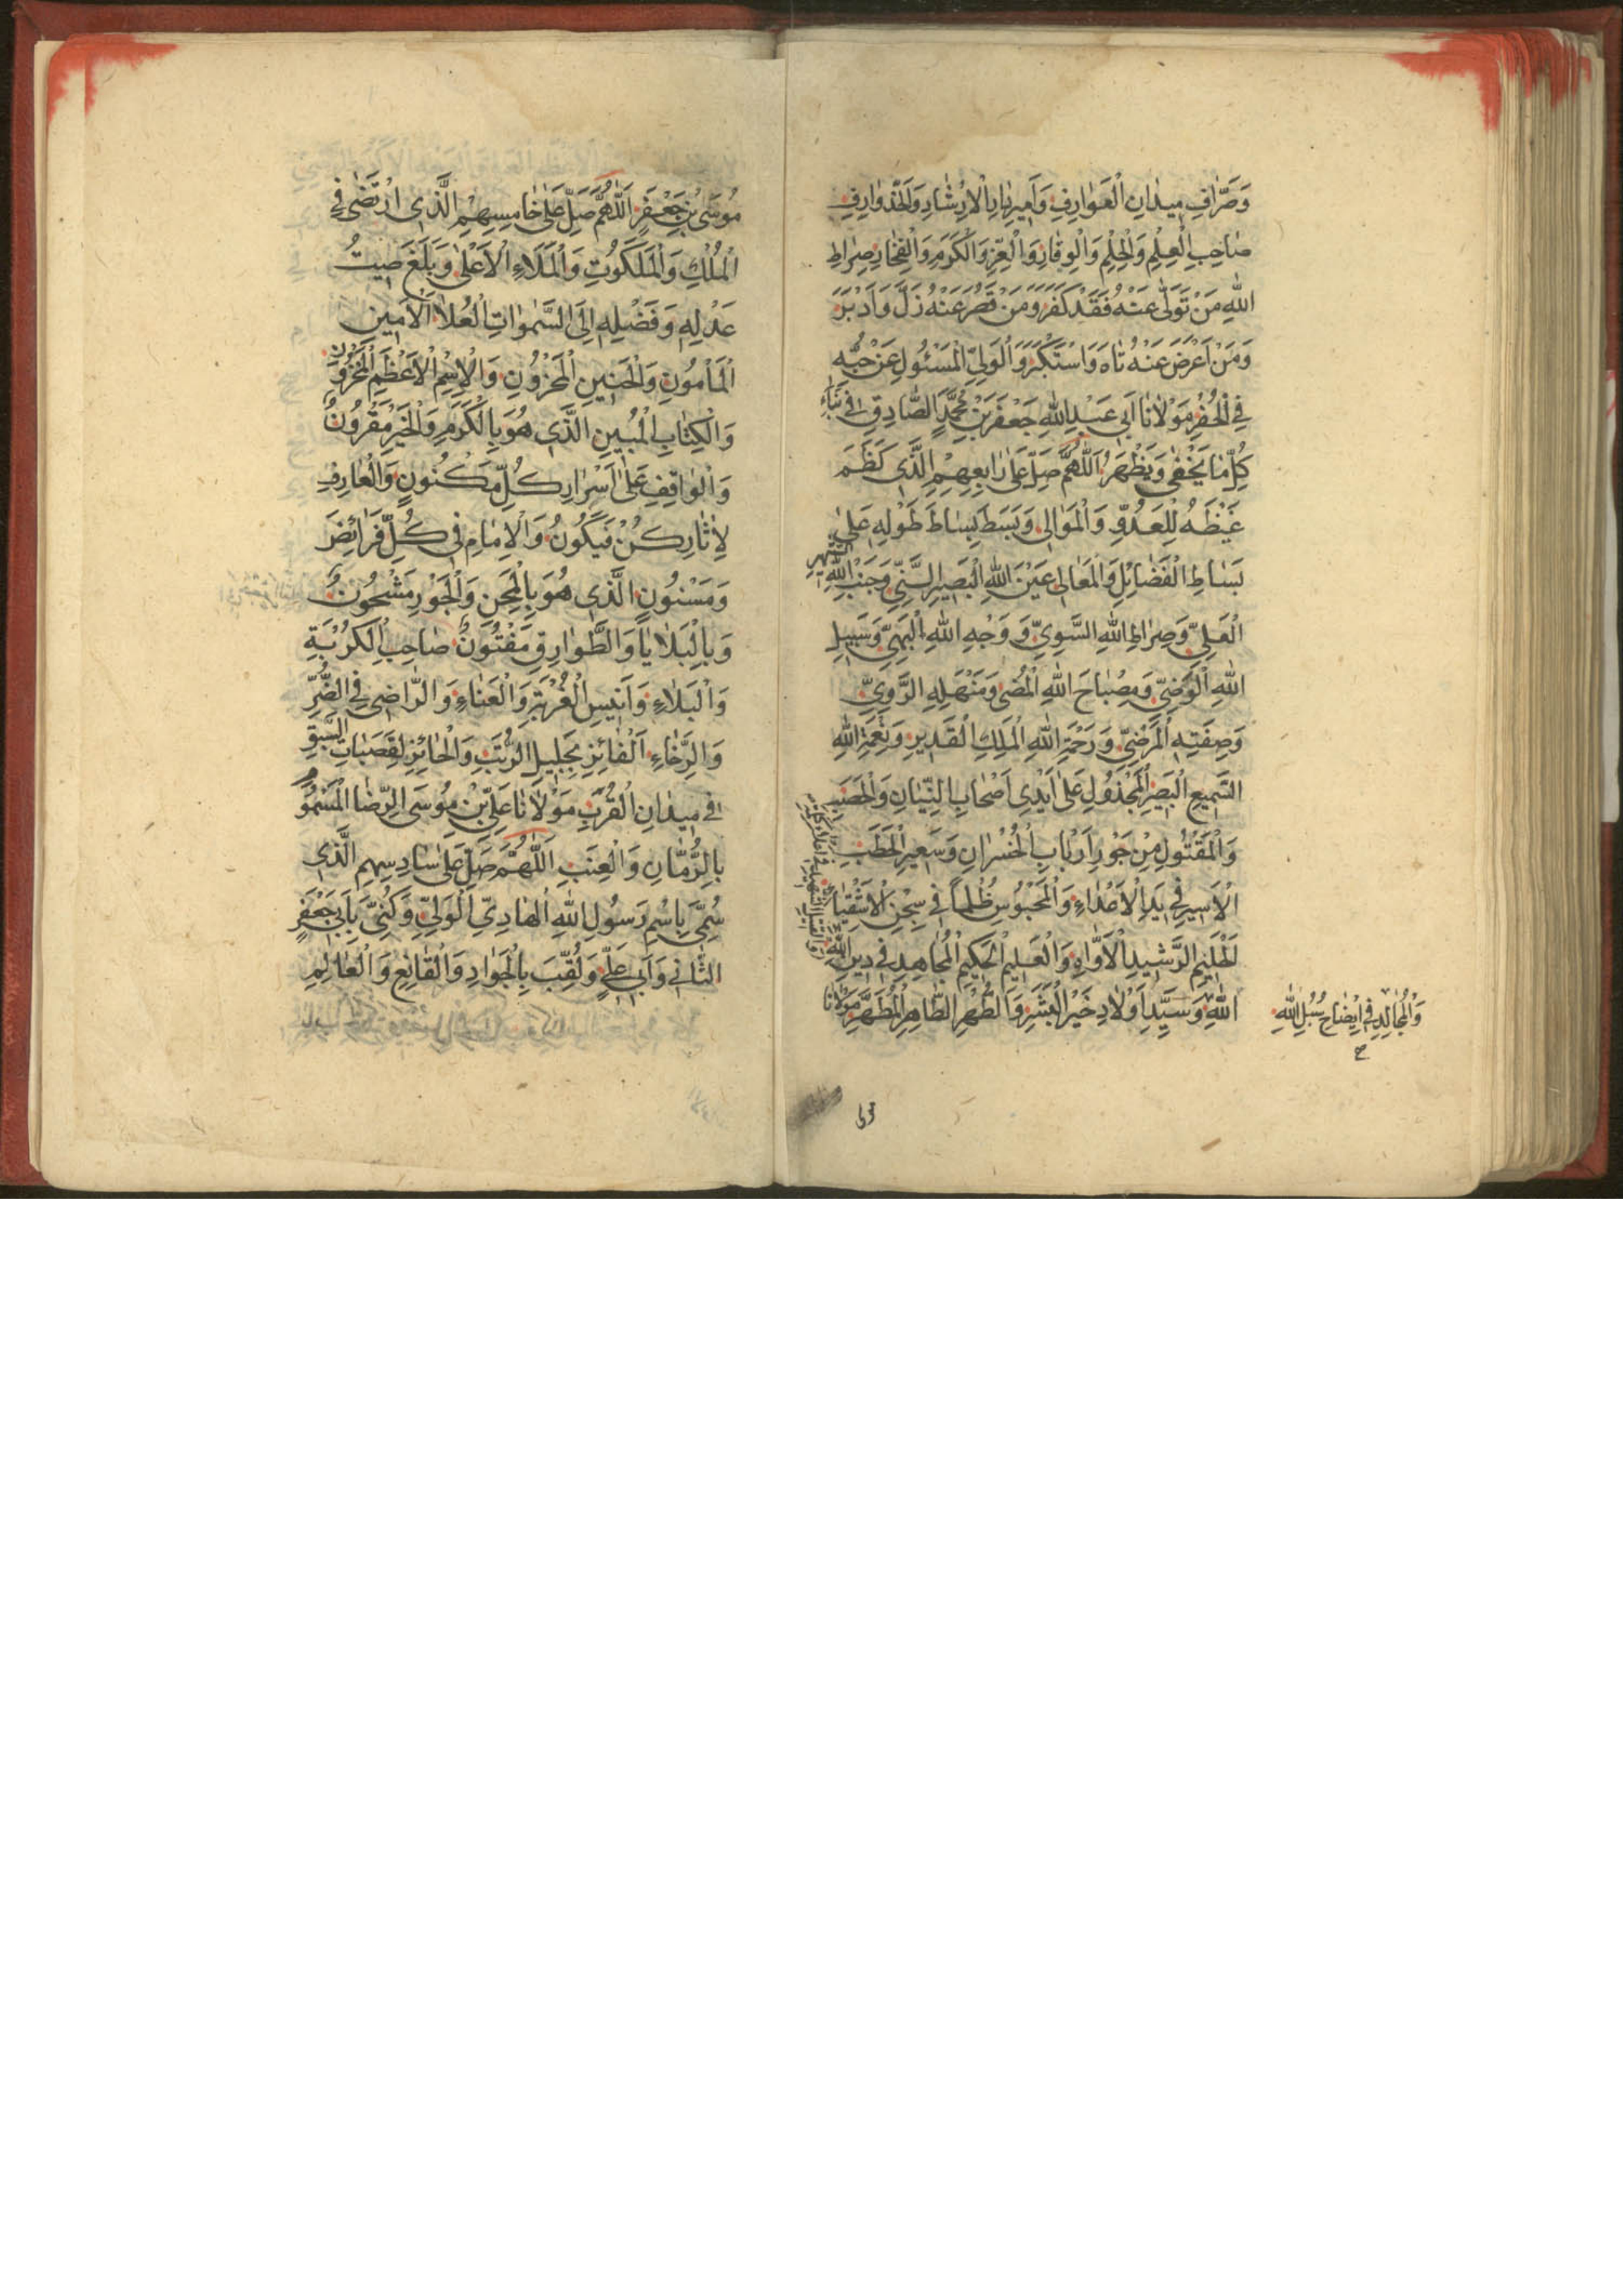 وَصَرَّافِ مِيدَانِ الْعَوَارِفِ وَاَمِيرِ الْاِرْشَادِ
صَاحِبِ الْعِلْمِ وَالْحِلْمِ وَالْوِقَارِ وَالْعِزِّ وَالْكَرَمِ وَالْفِخَارِ صِرَاطِ
اللّٰهِ مَنْ تَوَلّٰى عَنْهُ فَقَدْ كَفَرَ وَمَنْ قَصُرَ عَنْهُ زَلَّ وَاَدْبَرَ
وَمَنْ اَعْرَضَ عَنْهُ تَاهَ وَاسْتَكْبَرَ وَالْوَلِيِّ الْمَسْئُولِ عَنْ حُبِّهِ
فِي الْحُفَرِ مَوْلَانَا اَبِي عَبْدِ اللّٰهِ جَعْفَرِ بْنِ مُحَمَّدٍ الصَّادِقِ فِي
كُلِّ مَا يَخْفٰى وَيَظْهَرُ اَللّٰهُمَّ صَلِّ عَلٰى رَابِعِهِمِ الَّذِي كَظَمَ
غَيْظَهُ لِلْعَدُوِّ وَالْمَوَالِي وَبَسَطَ بِسَاطَ طَوْلِهِ عَلٰى
بَسَاطِ الْفَضَايِلِ وَالْمَعَالِي عَيْنِ اللّٰهِ الْبَصِيرِ السَّنِيِّ وَجَنْبِ اللّٰهِ
الْعَلِيِّ وَصِرَاطِ اللّٰهِ السَّوِيِّ وَوَجْهِ اللّٰهِ الْبَهِيِّ وَسَبِيلِ
اللّٰهِ الْوَضِيِّ وَمِصْبَاحَ اللّٰهِ الْمُضِي وَمَنْهَلِهِ الرَّوِيِّ
وَصِفَتِهِ الْمَرْضِيِّ وَرَحْمَةِ اللّٰهِ الْمَلِكِ الْقَدِيرِ وَنِعْمَةِ اللّٰهِ
السَّمِيعِ الْبَصِيرِ الْمَخْذُولِ عَلٰى اَيْدِي اَصْحَابِ النِّيرَانِ وَالْحَصَبِ
وَالْمَقْتُولِ مِنْ جَوْرِ اَرْبَابِ الْخُسْرَانِ وَسَعِيرِ الْحَطَبِ
الْاَسِيرِ فِي يَدِ الْاَعْدَاءِ وَالْمَحْبُوسِ ظُلْمًا فِي سِجْنِ الْاَشْقِيَاءِ
الْحَلِيمِ الرَّشِيدِ الْاَوَّاهِ وَالْعَلِيمِ الْحَكِيمِ الْمُجَاهِدِ فِي دِينِ اللّٰهِ
وَالْمُجَالِدِ فِي اِيضَاحِ سُبُلِ اللّٰهِ
اللّٰهِ وَسَيِّدِ اَوْلَادِ خَيْرِ الْبَشَرِ وَالطُّهْرِ الطَّاهِرِ الْمُطَهَّرِ مَوْلَانَا
مُوسَى بْنِ جَعْفَرٍ اَللّٰهُمَّ صَلِّ عَلٰى خَامِسِهِمِ الَّذِي ارْتَضٰى فِي
الْمُلْكِ وَالْمَلَكُوتِ وَالْمَلَاءِ الْاَعْلٰى وَبَلَغَ صِيتُ
عَدْلِهِ وَفَضْلِهِ اِلَى السَّمٰوَاتِ الْعُلَا الْاَمِينِ
الْمَأْمُونِ وَالْحَنِينِ الْمَحْزُونِ وَالْاِسْمِ الْاَعْظَمِ الْمَخْزُونِ
وَالْكِتَابِ الْمُبِينِ الَّذِي هُوَ بِالْكَرَمِ وَالْخَيْرِ مَقْرُونٌ
وَالْوَاقِفِ عَلٰى اَسْرَارِ كُلِّ مَكْنُونٍ وَالْعَارِفِ
لِاٰثَارِ كُنْ فَيَكُونُ وَالْاِمَامِ فِي كُلِّ فَرَائِضَ
وَمَسْنُونٍ الَّذِي هُوَ بِالْمِحَنِ وَالْجَوْرِ مَشْحُونٌ
وَبِالْبَلَايَا وَالطَّوَارِقِ مَفْتُونٌ صَاحِبِ الْكُرْبَةِ
وَالْبَلَاءِ وَاَنِيسِ الْغُرْبَةِ وَالْعَنَاءِ وَالرَّاضِي فِي الضُّرِّ
وَالرَّخَاءِ الْفَائِزِ بِجَلِيلِ الرُّتَبِ وَالْحَائِزِ لِقَصَبَاتِ السَّبْقِ
فِي مِيدَانِ الْقُرَبِ مَوْلَانَا عَلِيِّ بْنِ مُوسَى الرِّضَا الْمَسْمُومِ
بِالرُّمَّانِ وَالْعِنَبِ اَللّٰهُمَّ صَلِّ عَلٰى سَادِسِهِمِ الَّذِي
سُمِّيَ بِاسْمِ رَسُولِ اللّٰهِ الْهَادِي الْوَلِيِّ وَكُنِّيَ بِاَبِي جَعْفَرٍ
الثَّانِي وَاَبِي عَلِيٍّ وَلُقِّبَ بِالْجَوَادِ وَالْقَانِعِ وَالْعَالِمِ